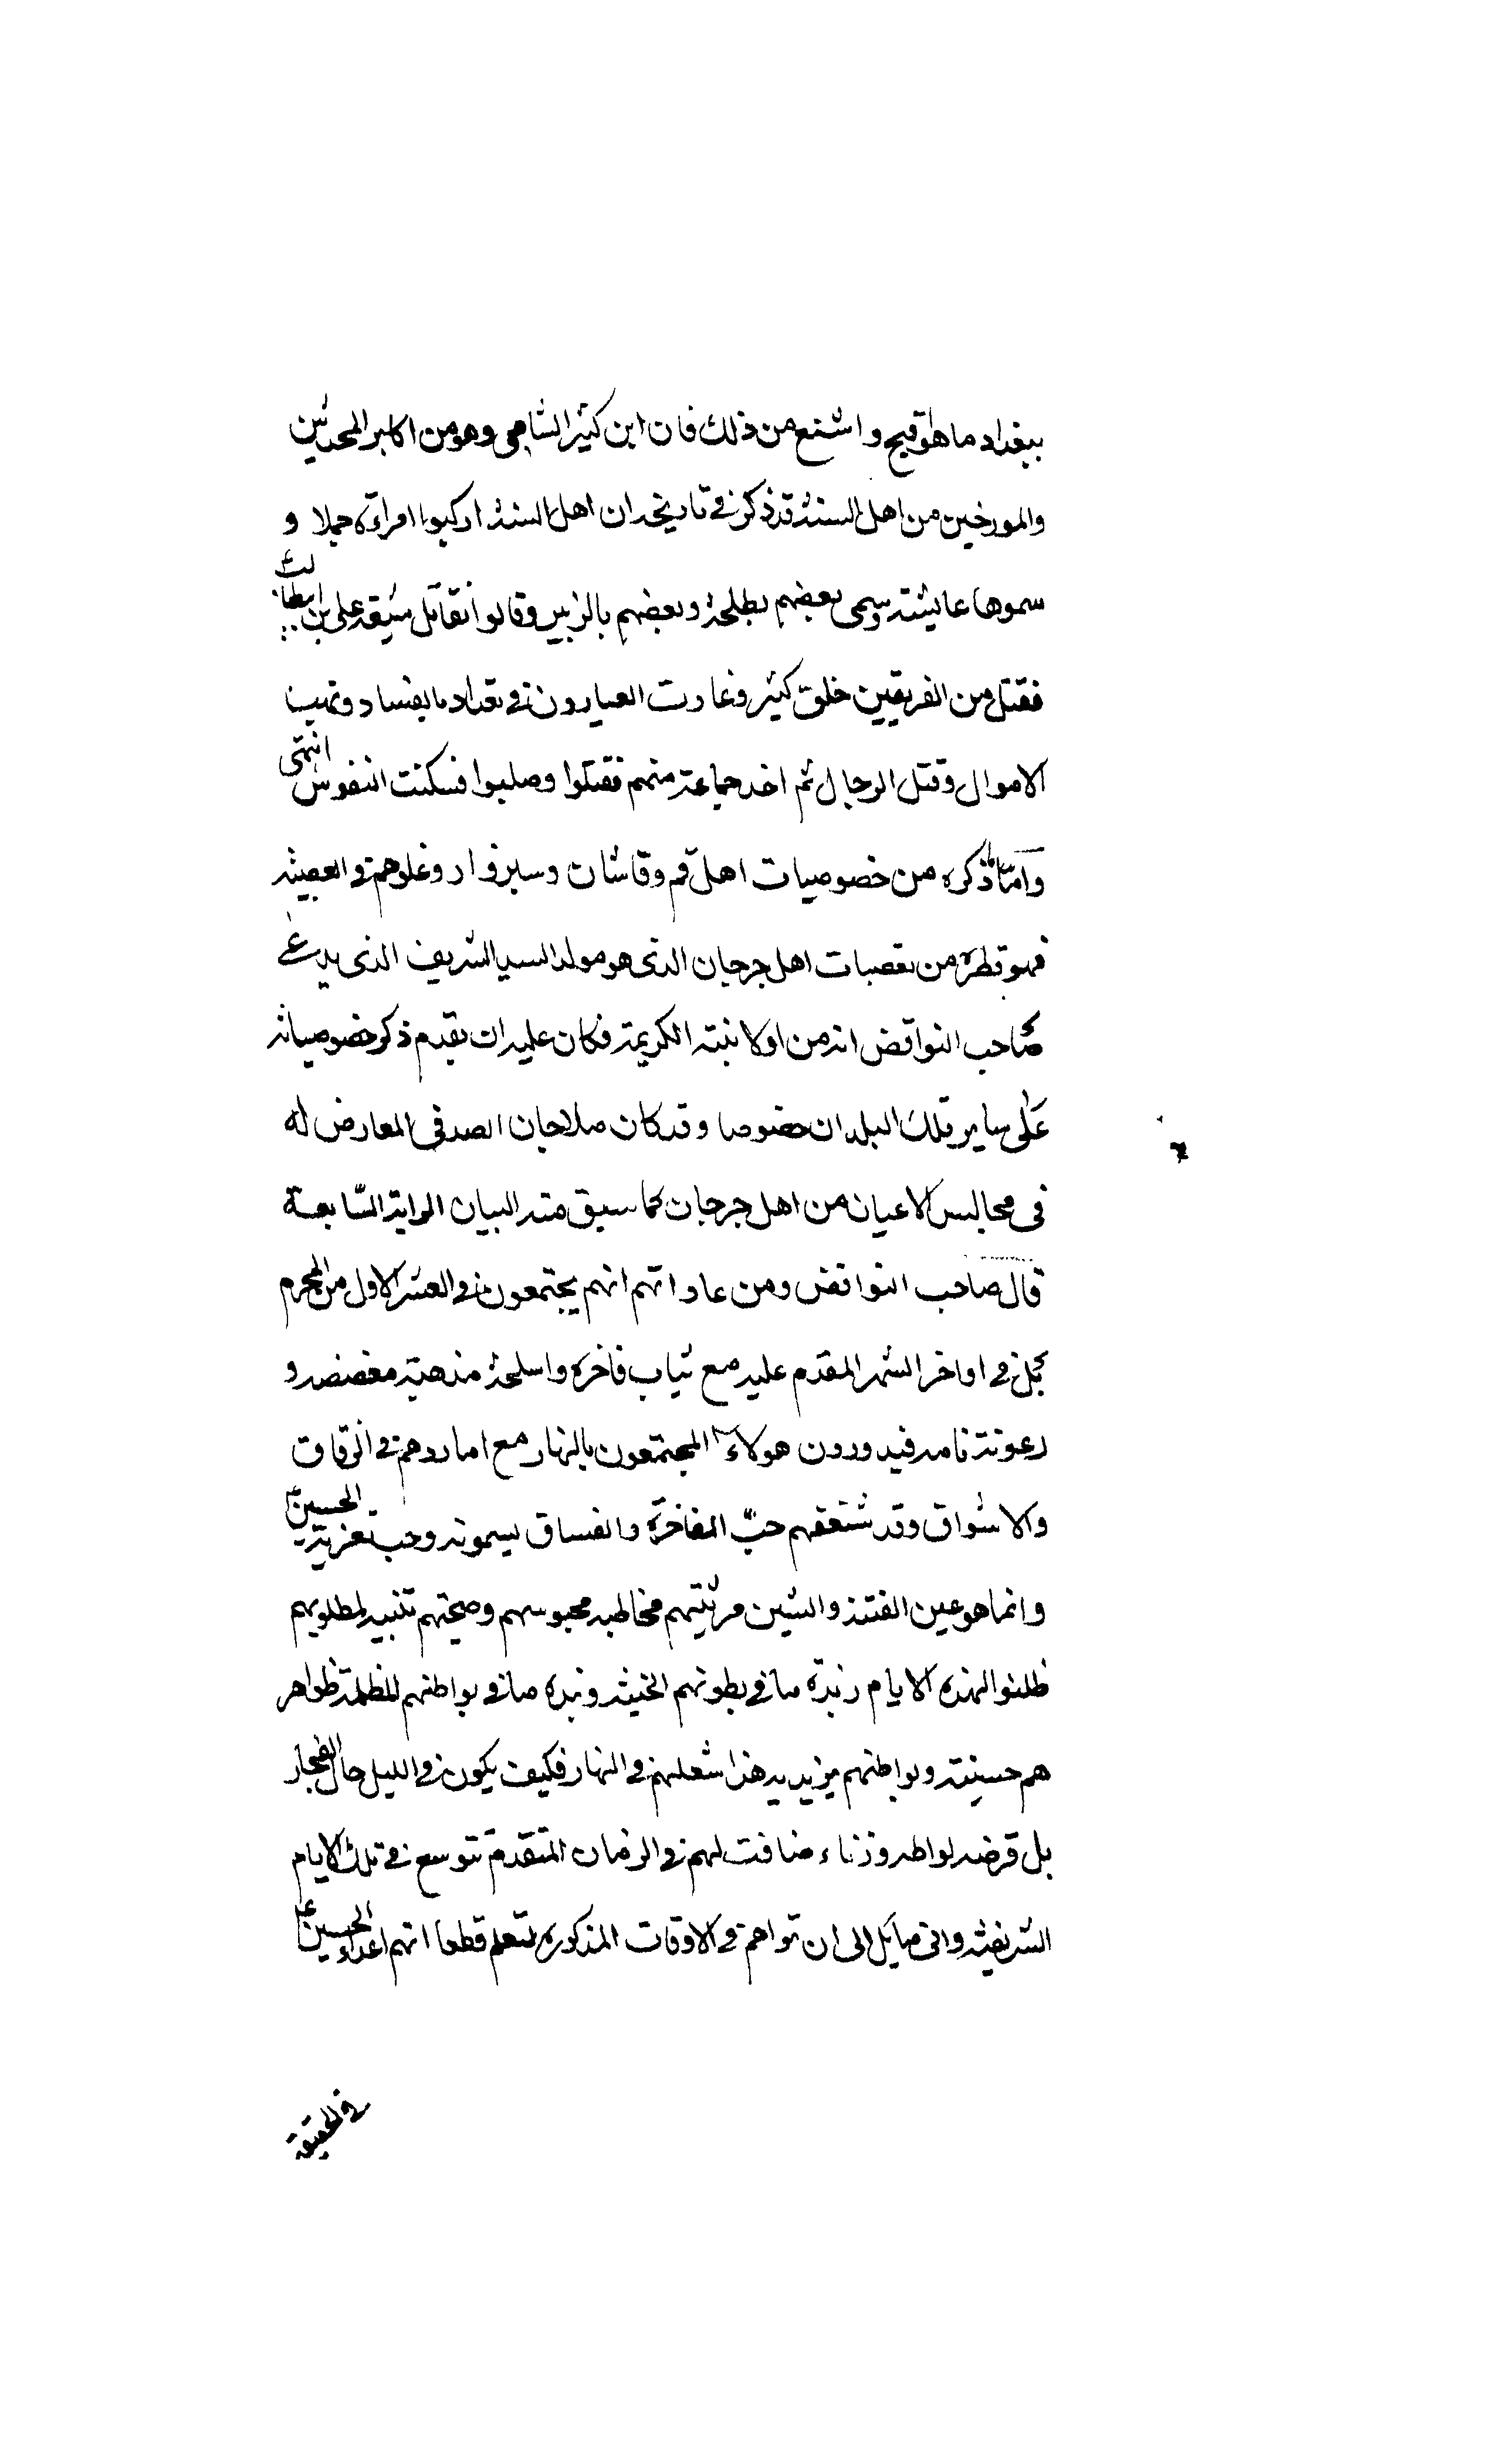 ببغداد ما هو اقبح واشنع من ذلك فان ابن كثير الشامي وهو من اكابر المحدثين
والمورخين من اهل السنة قد ذكر في تاريخه ان اهل السنة اركبوا امراءة جملا و
سموها عايشة وسمى بعضهم بطلحة وبعضهم بالزبير وقالوا نقاتل شيعة علي بن ابيطالب
فقتل من الفريقين خلق كثير وغارت العيارون في بغداد بالفساد ونهب
الاموال وقتل الرجال ثم اخذ جماعة منهم فقتلوا وصلبوا فسكنت النفوس انتهى
واما ما ذكره من خصوصيات اهل قم وقاشان وسبزوار وغلوهم في العصبية
فهو قطرة من تعصبات اهل جرجان الذي هو مولد السيد الشريف الذي يدعي
صاحب النواقض انه من اولاد بنته الكريمة فكان عليه ان يقدم ذكر خصوصياته
على ساير تلك البلدان خصوصا وقد كان ملاجان الصدفي المعارض له
في مجالس الاعيان من اهل جرجان كما سبق منه البيان الراية السابعة
قال صاحب النواقض ومن عاداتهم انهم يجتمعون في العشر الاول من المحرم
بل في اواخر الشهر المقدم عليه مع ثياب فاخرة واسلحة مذهبة مفضضة و
رعونة تامة فيدورون هولاء المجتمعون بالنهار مع اماردهم في الزقاق
والاسواق وقد شغفهم حب المفاخرة والفساق يسمونه وحب تعزية الحسين
وانما هو عين الفتنة والشين مرثيتهم مخاطبة محبوسهم وصيحتهم تنبيه لمطلوبهم
ظلنوا لهذه الايام زبدة ما في بطونهم الخبيثة ونبذة ما في بواطنهم للظلمة ظواهر
هم حسينية وبواطنهم يزيدية هذا شغلهم في النهار فكيف يكون في الليل حال الفجار
بل قرضه لواطة وزناء ضاقت لهم في الزمان المتقدم تتوسع في تلك الايام
الشريفة واني مايل الى ان تراهم في الاوقات المذكورة لتعلم قطعا انهم اعداء الحسين
في الحقيقة